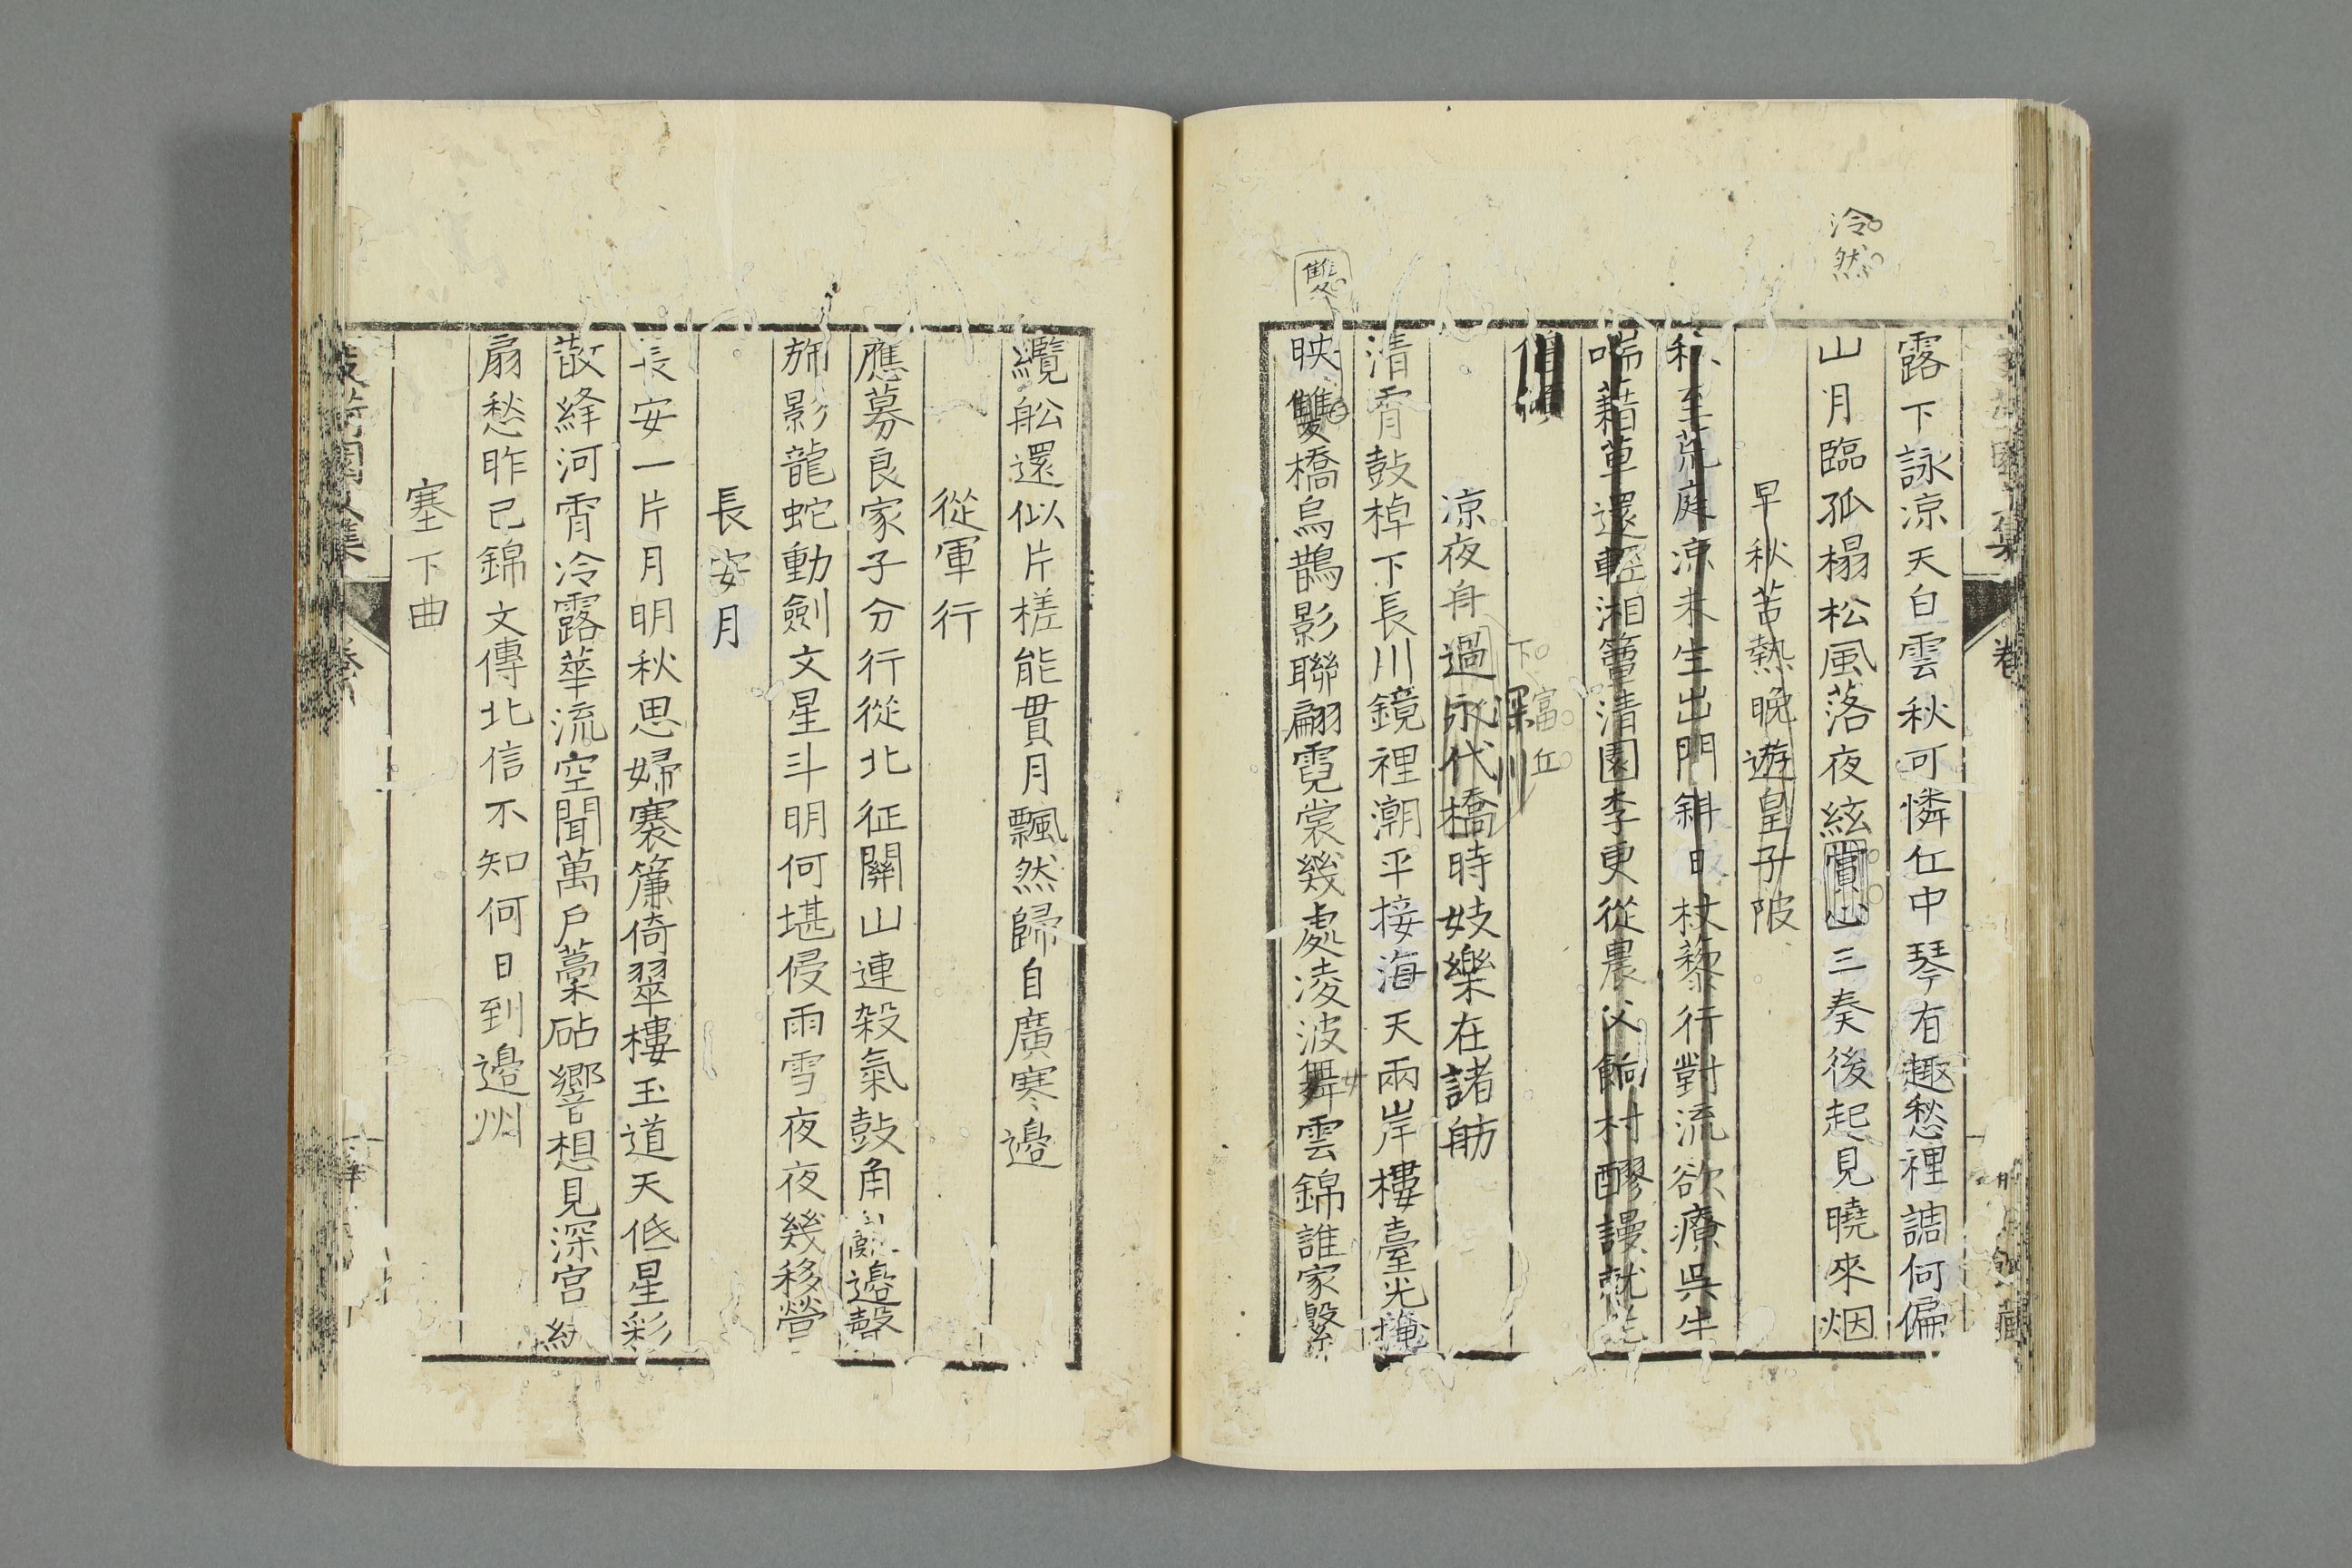 冷然
露下詠涼天白雲秋可憐仕中琴有趣愁裡調何偏
山月臨孤榻松風落夜絃賞心三奏後起見曉來烟
早秋苦熱晩遊皇子陂
秋至荒庭凉未生出門斜日杖藜行對流欲療呉牛
喘藉草還輕湘簟清園李更從農父餉村醪謾就
下富丘
深川
凉夜舟過永代橋時妓樂在諸舫
清霄鼓棹下長川鏡裡潮平接海天兩岸樓臺光掩
雙
映雙橋烏鵲影聯翩霓裳幾處凌波舞雲錦誰家繫
纜舩還似片槎能貫月飄然歸自廣寒邉
從軍行
應募良家子分行從北征關山連殺氣鼓角邉聲
旆影龍蛇動劍文星斗明何堪侵雨雪夜夜幾移營
長安月
長安一片月明秋思婦褰簾倚翠樓玉道天低星彩
散絳河霄冷露華流空聞萬戶藁砧響想見深宮紈
扇愁昨已錦文傳北信不知何日到邉州
塞下曲